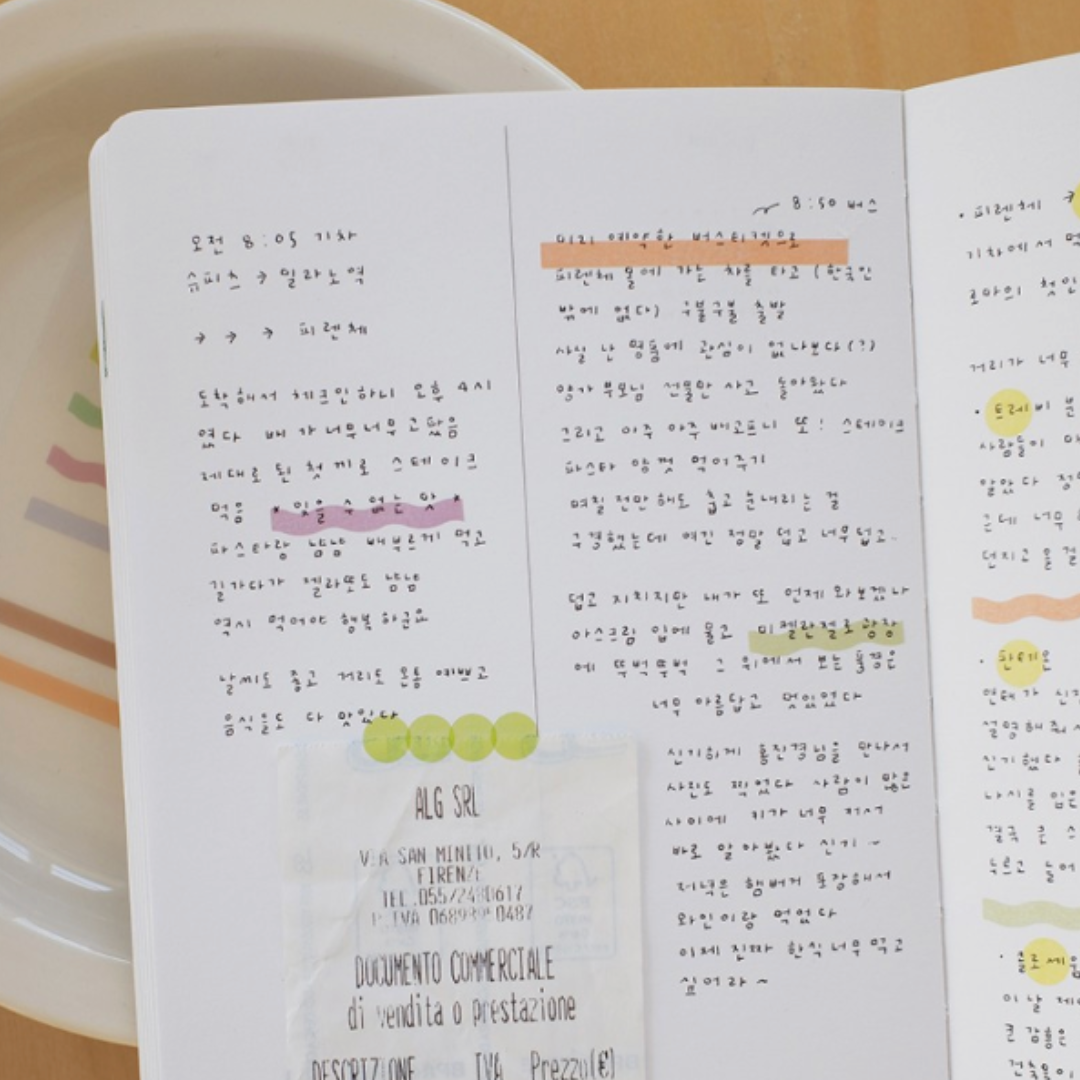 오전 8:05 기차
슈피츠 → 밀라노역
→ → → 피렌체
도착해서 체크인하니 오후 4시
였다 배가 너무너무 고팠음
제대로 된 첫 끼로 스테이크
먹음 * 잊을 수 없는 맛 *
파스타랑 냠냠 배부르게 먹고
길가다가 젤라또도 냠냠
역시 먹어야 행복하군요
날씨도 좋고 거리도 온통 예쁘고
음식들도 다 맛있다
ALG SRL
VIA SAN MINITO, 5/R
FIRENZE
TEL.055/2480617
P.IVA
DOCUMENTO COMMERCIALE
di vendita o prestazione
DESCRIZIONE IVA Prezzo(€)
8:50 버스
미리 예약한 버스티켓으로
피렌체 몰에 가는 차를 타고 (한국인
밖에 없다) 구불구불 출발
사실 난 명품에 관심이 없나보다(?)
양가 부모님 선물만 사고 돌아왔다
그리고 아주 아주 배고프니 또! 스테이크
파스타 양껏 먹어주기
며칠 전만 해도 춥고 눈내리는 걸
구경했는데 여긴 정말 덥고 너무덥고..
덥고 지치지만 내가 또 언제 와보겠나
아스크림 입에 물고 미켈란젤로 광장
에 뚜벅뚜벅 그 위에서 보는 풍경은
너무 아름답고 멋있었다
신기하게 홍진경님을 만나서
사진도 찍었다 사람이 많은
사이에 키가 너무 커서
바로 알아봤다 신기~
저녁은 햄버거 포장해서
와인이랑 먹었다
이제 진짜 한식 너무 먹고
싶어라~
• 피렌체 →
기차에서
로마의
거리가 너무
• 트레비
사람들이
알았다
근데 너무
던지고 올
• 판테온
설명해줘서
신기했다
나시를 입은
결국 큰
두르고
• 콜로세움
이 날
큰 감흥은